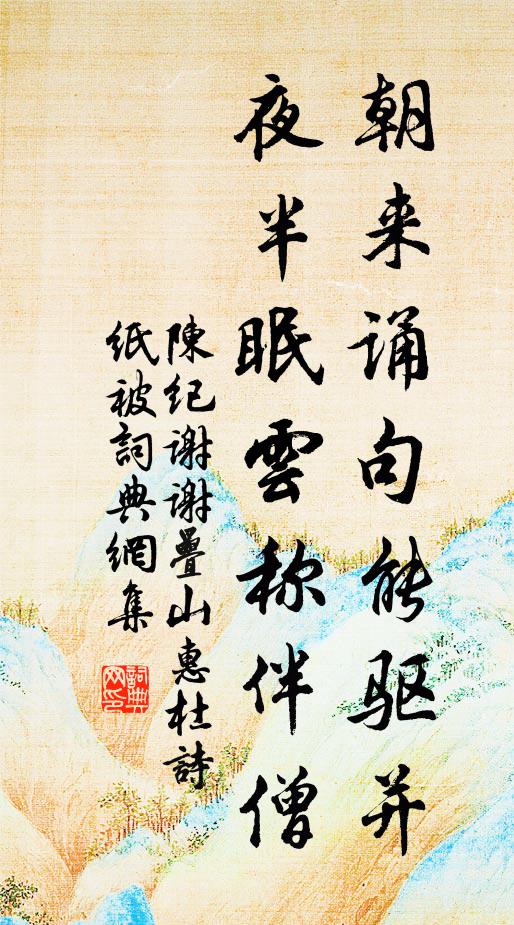 朝来诵句能驱并
夜半眠雲称伴僧
陳纪谢谢疊山惠杜詩
纸被詞典網集
詞典网印